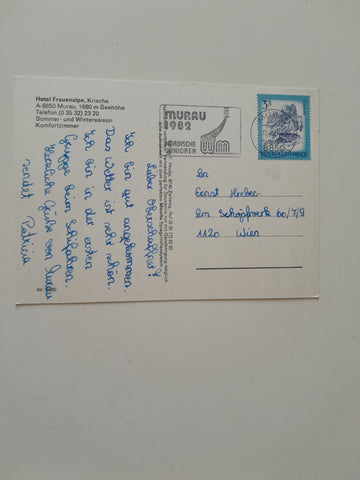 Hotel Frauenalpe, Krische
A-8850 Murau, 1680 m Seehöhe
Telefon (0 35 32) 23 20
Sommer- und Wintersaison
Komfortzimmer
Lieber Oberschaffner!
Ich bin gut angekommen.
Das Wetter ist sehr schön.
Ich bin in der ersten
Gruppe beim Schifahren.
Herzliche Grüße von Murau
sendet Patricia
MURAU
1982
NORDISCHE
JUNIOREN
WM
3 S
REPUBLIK ÖSTERREICH
8850
An
Ernst
Am Schöpfwerk
1120 Wien